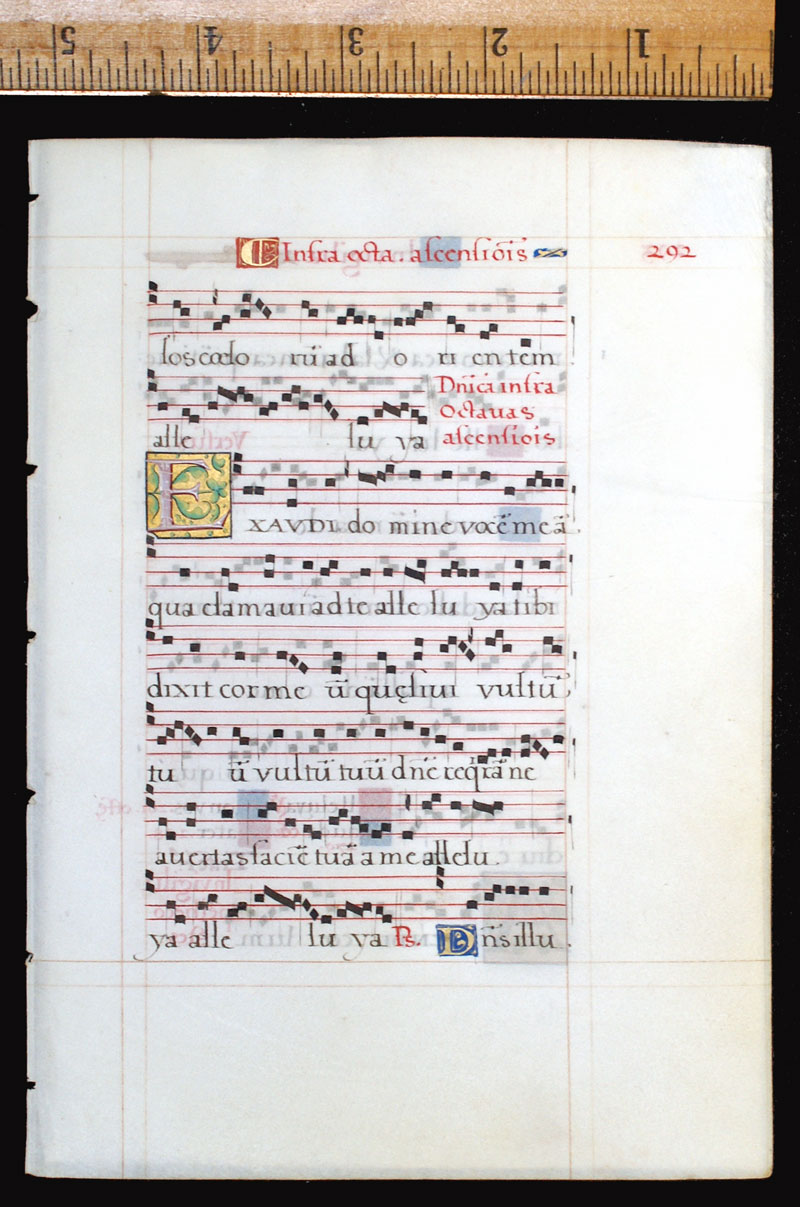 5 4 3 2 1
Infra octa. ascensiōis
292
los cœlo rū ad o ri en tem
Dnīca infra
alle lu ya
Octavas
ascensiois
EXAVDI do mine vocē meā
qua clamaui ad te alle lu ya tibi
dixit cor me ū quęsiui vultū
tu ū vultū tuū dnē reqrā ne
avertas faciē tuā a me allelu.
ya alle lu ya Ps. Dn̄s illu